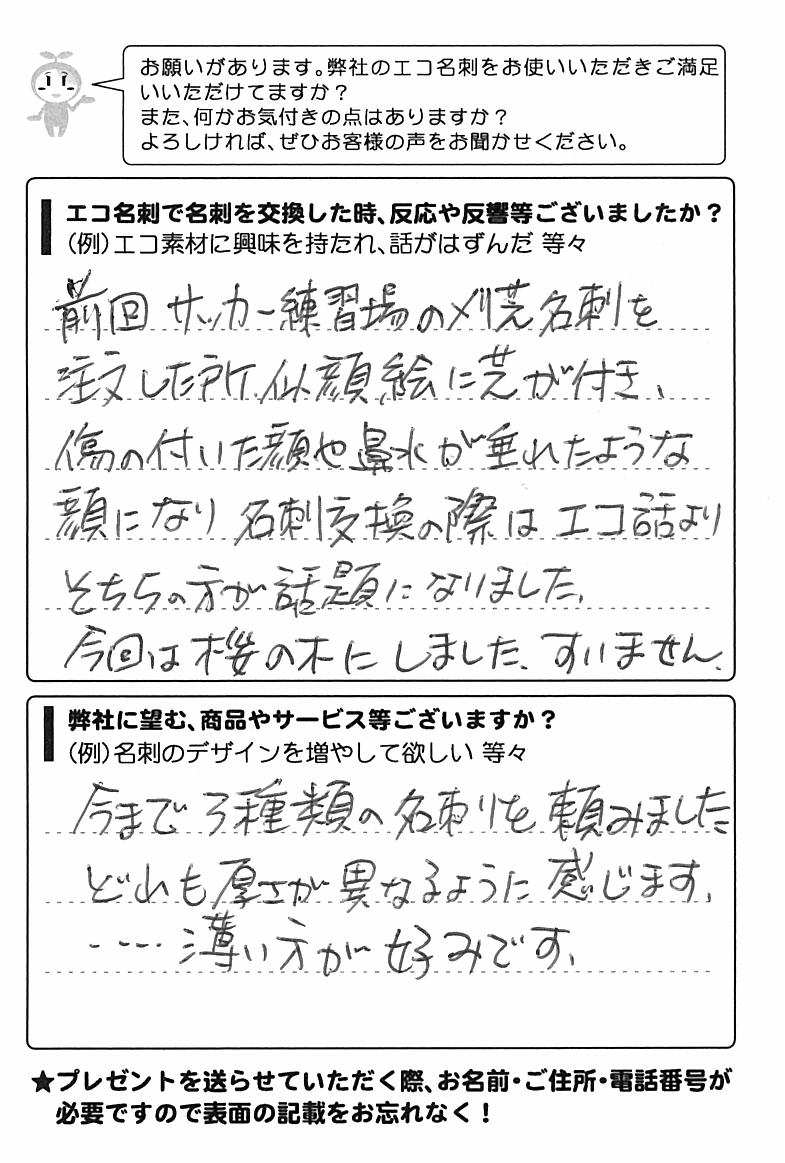 お願いがあります。弊社のエコ名刺をお使いいただきご満足
いいただけてますか？
また、何かお気付きの点はありますか？
よろしければ、ぜひお客様の声をお聞かせください。
エコ名刺で名刺を交換した時、反応や反響等ございましたか？
（例）エコ素材に興味を持たれ、話がはずんだ 等々
前回 サッカー練習場の刈芝名刺を
注文した所、似顔絵に芝が付き、
傷の付いた顔や鼻水が垂れたような
顔になり 名刺交換の際は エコ話より
そちらの方が話題になりました。
今回は桜の木にしました。すいません。
弊社に望む、商品やサービス等ございますか？
（例）名刺のデザインを増やして欲しい 等々
今まで 3種類の名刺りを頼みました
どれも厚さが異なるように感じます。
‥‥薄い方が好みです。
★プレゼントを送らせていただく際、お名前・ご住所・電話番号が
必要ですので表面の記載をお忘れなく！